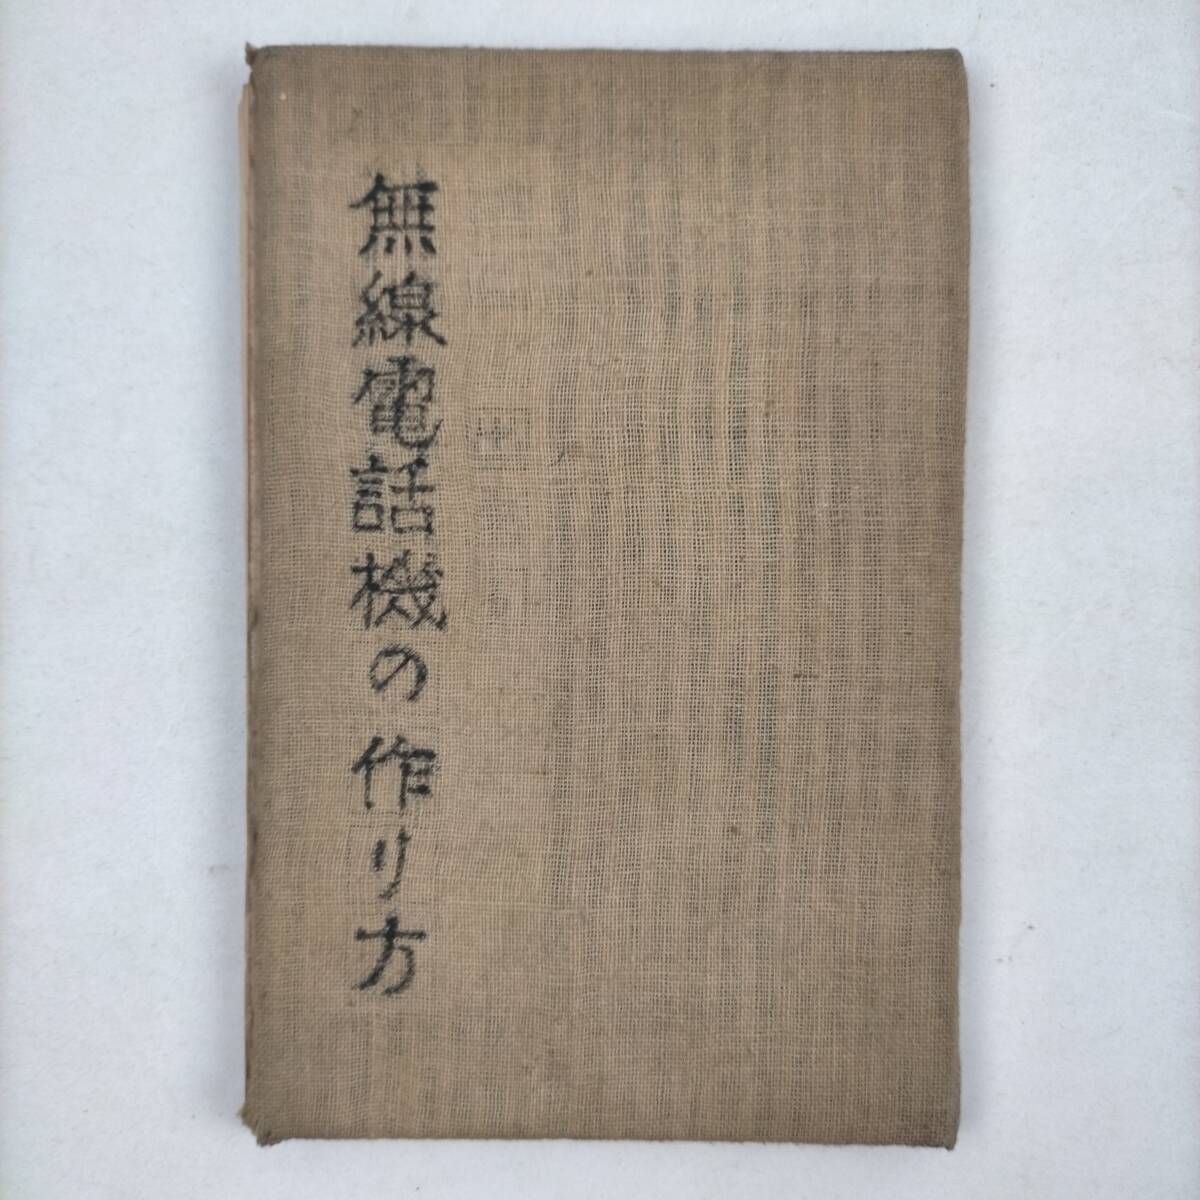 無線電話機の作り方